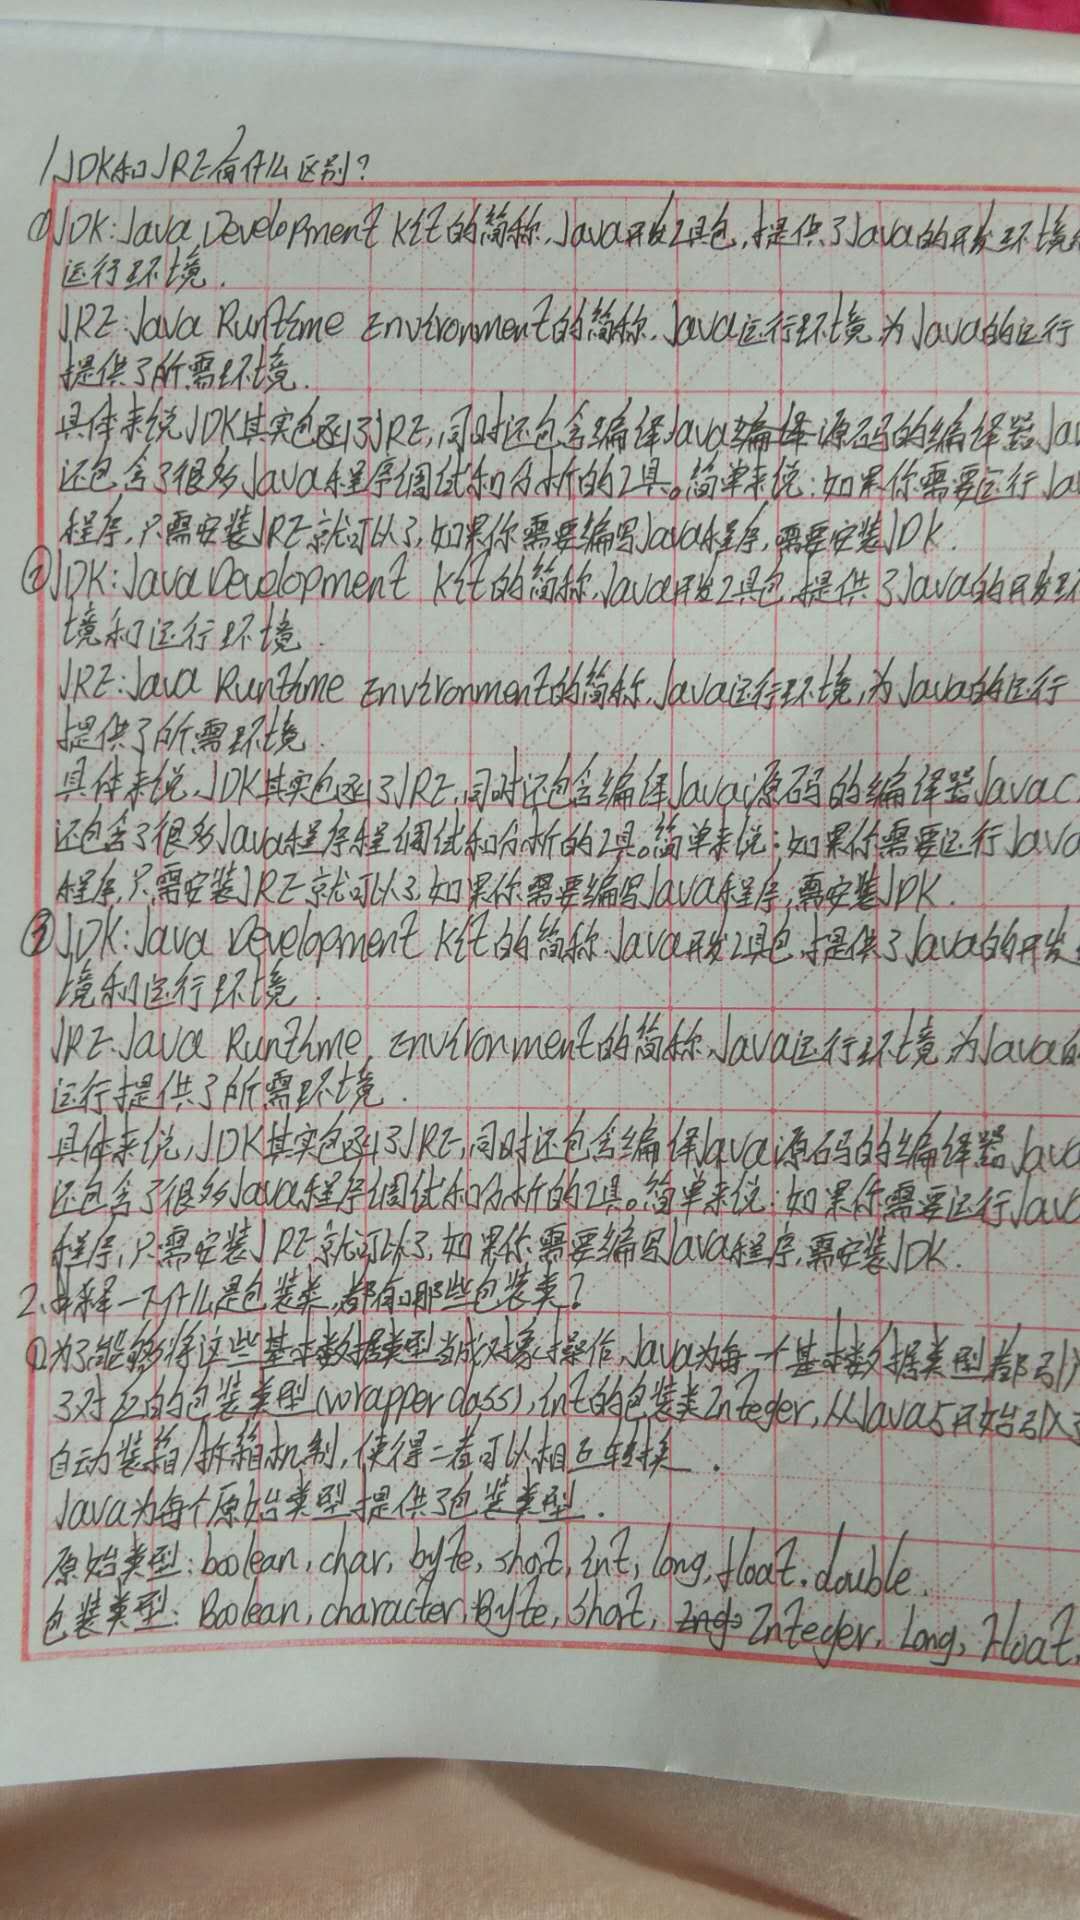 1、JDK和JRE有什么区别?
①JDK:Java Development Kit的简称,Java开发工具包,提供了Java的开发环境
运行环境.
JRE:Java Runtime Environment的简称,Java运行环境,为Java的运行
提供了所需环境.
具体来说JDK其实包函了JRE,同时还包含编译Java编译源码的编译器Jav
还包含了很多Java程序调试和分析的工具。简单来说:如果你需要运行Ja
程序,只需安装JRE就可以了,如果你需要编写Java程序,需要安装JDK.
②JDK:Java Development Kit的简称,Java开发工具包,提供了Java的开发环
境和运行环境.
JRE:Java Runtime Environment的简称,Java运行环境,为Java的运行
提供了所需环境.
具体来说,JDK其实包函了JRE,同时还包含编译Java源码的编译器Javac,
还包含了很多Java程序程调试和分析的工具。简单来说:如果你需要运行Java
程序,只需安装JRE就可以了,如果你需要编写Java程序,需安装JDK.
③JDK:Java Development Kit的简称,Java开发工具包,提供了Java的开发
境和运行环境.
JRE:Java Runtime Environment的简称,Java运行环境,为Java的
运行提供了所需环境.
具体来说,JDK其实包函了JRE,同时还包含编译Java源码的编译器Java
还包含了很多Java程序调试和分析的工具。简单来说:如果你需要运行Java
程序,只需安装JRE就可以了,如果你需要编写Java程序,需安装JDK.
2、解释一下什么是包装类,都有哪些包装类?
①为了能够将这些基本数据类型当成对象操作,Java为每一个基本数据类型都引入
了对应的包装类型(wrapper class),int的包装类Integer,从Java5开始引入了
自动装箱/拆箱机制,使得二者可以相互转换.
Java为每个原始类型提供了包装类型.
原始类型:boolean,char,byte,short,int,long,float,double.
包装类型:Boolean,character,Byte,Short, Integer,Long,Float,